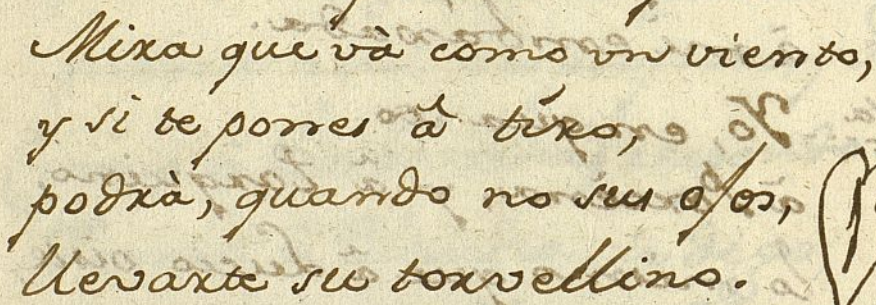 Mira que và como vn viento,
y si te pones â tiro,
podrà, quando no sus ojos,
llevarte su torvellino.